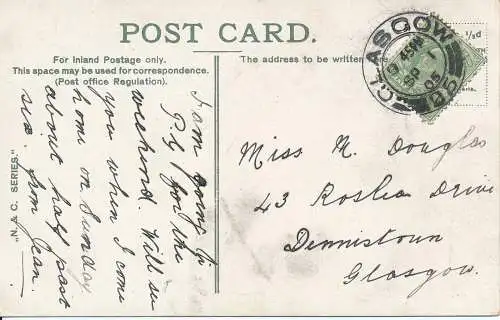 POST CARD.
For Inland Postage only.
This space may be used for correspondence.
(Post office Regulation).
The address to be written here
½d
GLASGOW
4 45PM
SP
05
"N. & C. SERIES."
I am going to
P.G. for the
weekend. Will see
you when I come
home on Sunday
about half past
six. from Jean.
Miss M. Douglas
43 Roslea Drive
Dennistoun
Glasgow.